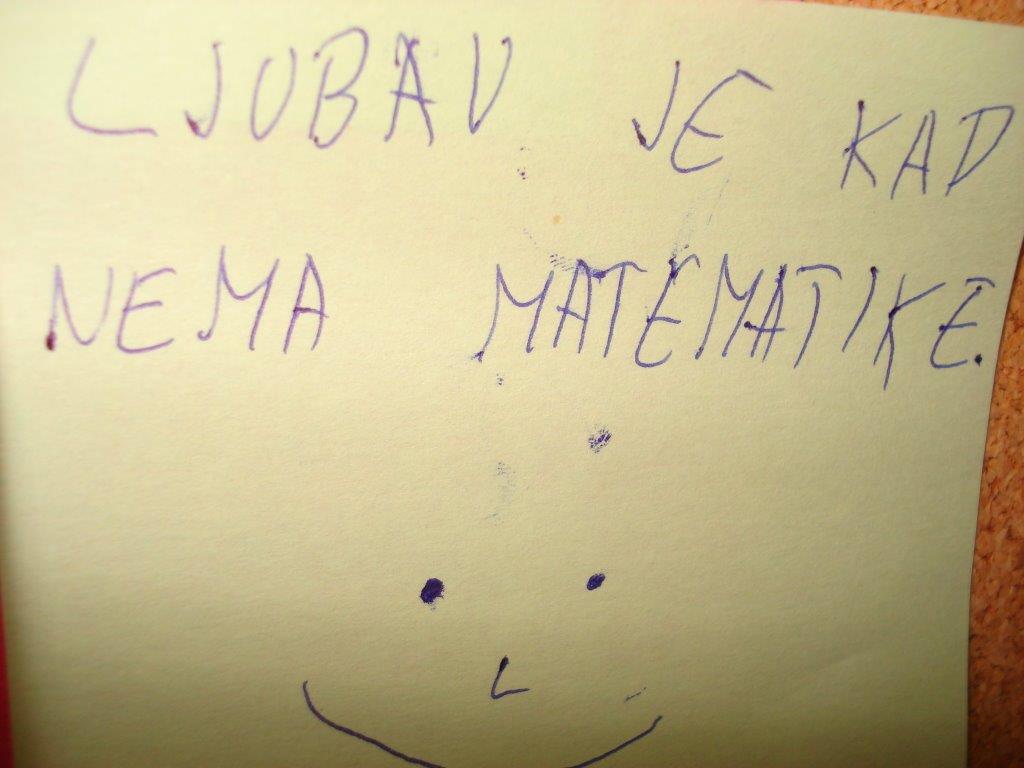 LJUBAV JE KAD
NEMA MATEMATIKE.